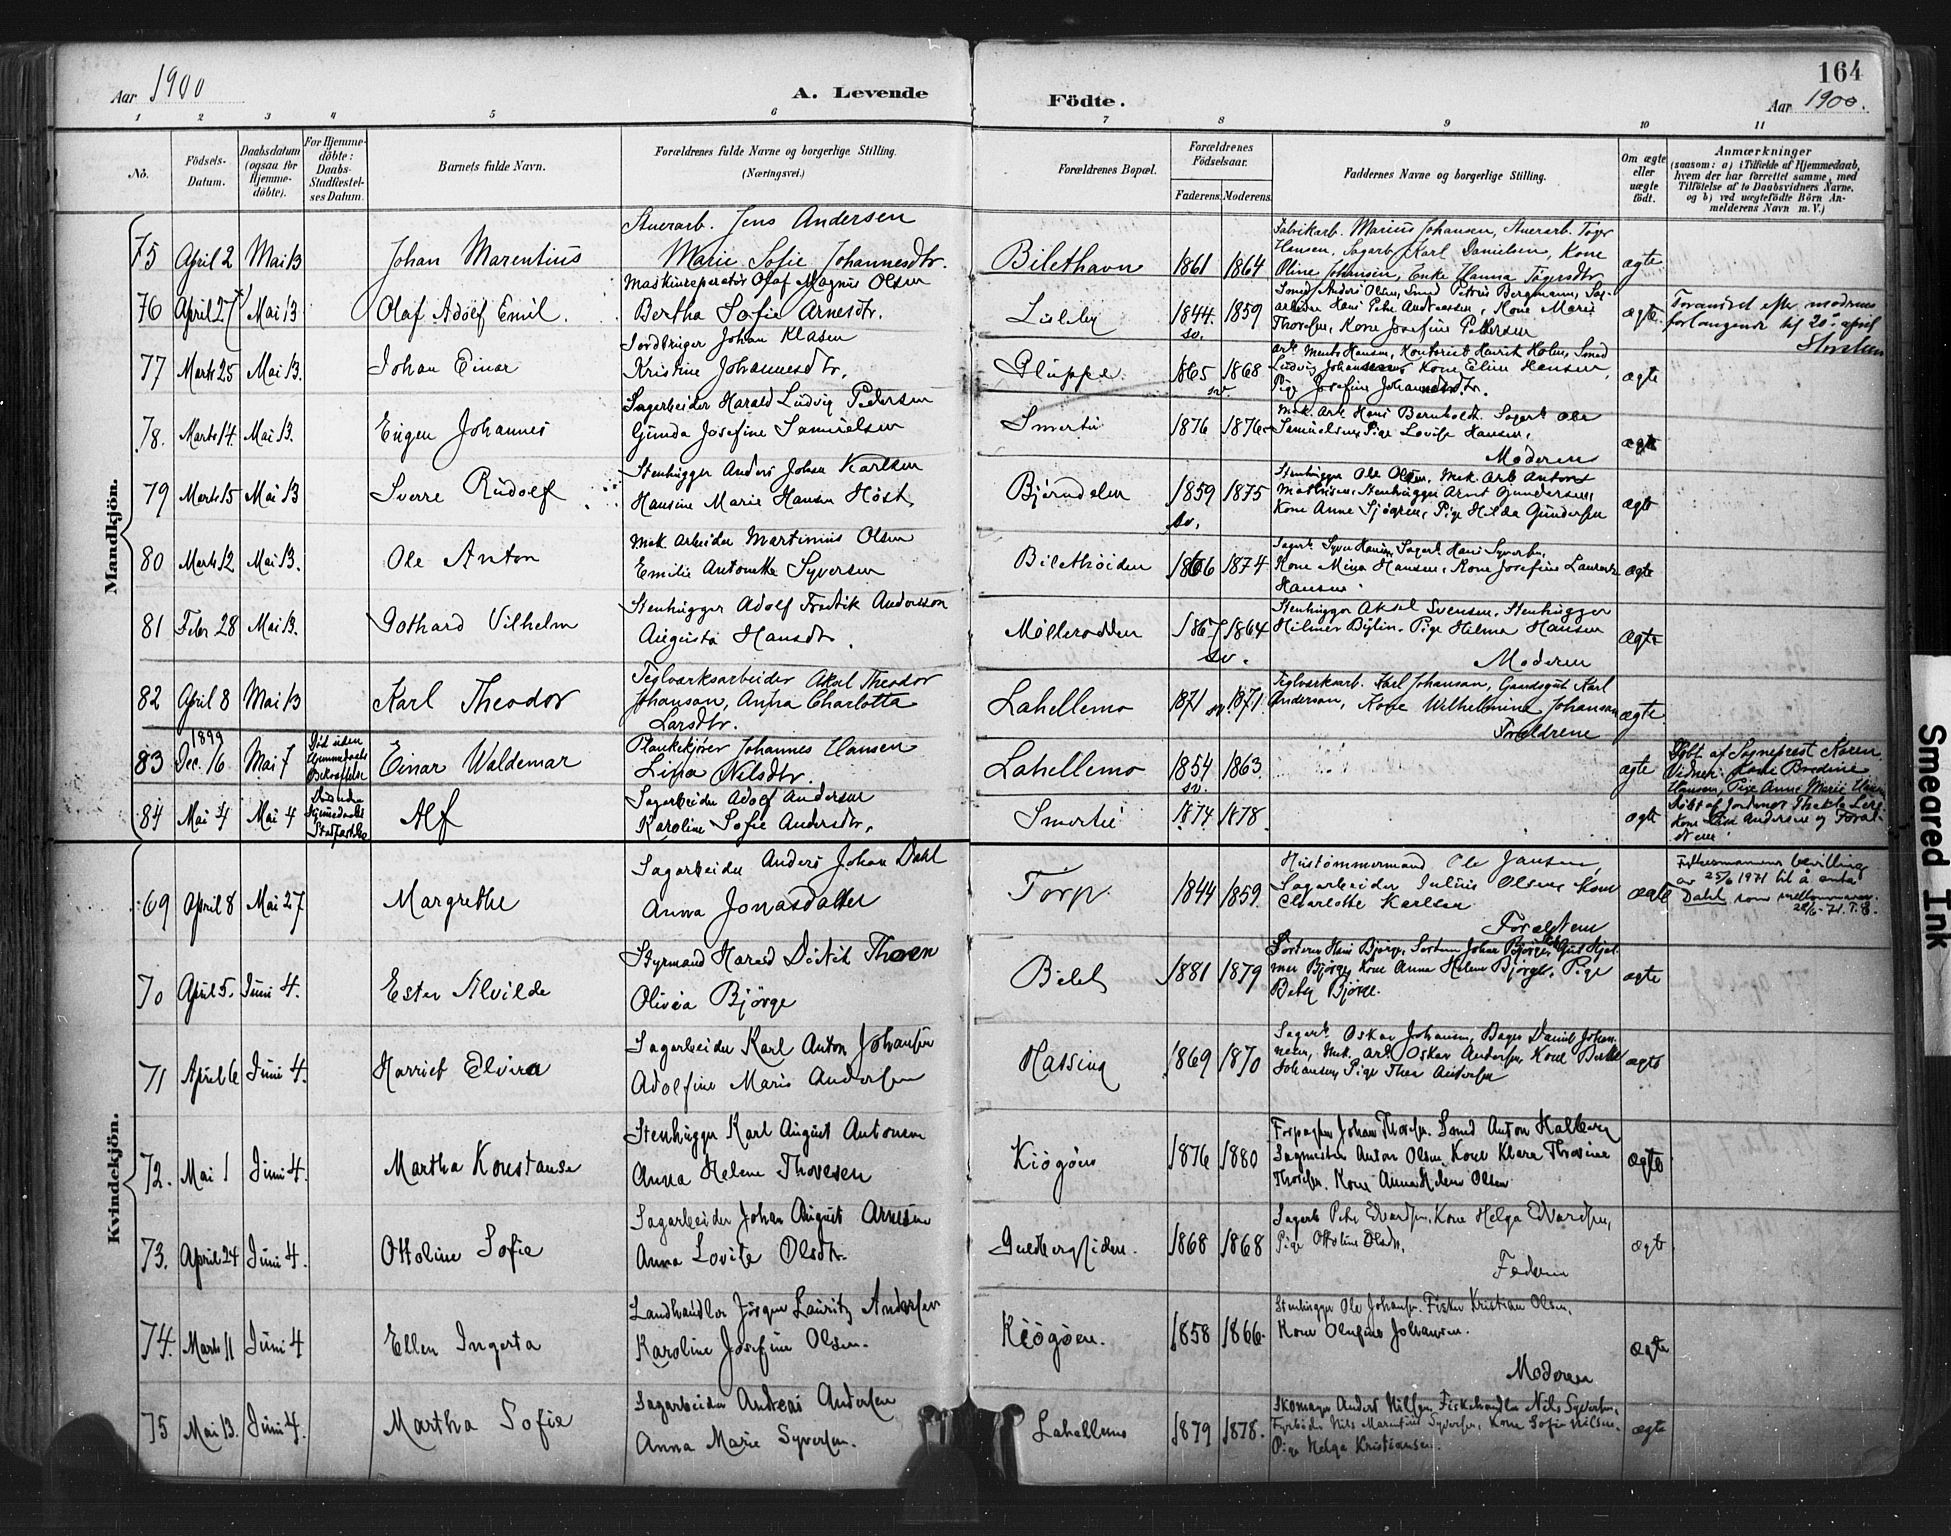 Aar 1900
A. Levende
Födte.
164
Aar 1900.
1 2 3 4 5 6 7 8 9 10 11
No.
Födsels-Datum.
Daabsdatum (ogsaa for Hjemme-döbte).
For Hjemme-döbte: Daabs-Stadfæstel-ses Datum.
Barnets fulde Navn.
Forældrenes fulde Navne og borgerlige Stilling.
(Næringsvei.)
Forældrenes Bopæl.
Forældrenes Födselsaar.
Faderens. Moderens.
Faddernes Navne og borgerlige Stilling.
Om ægte eller uægte födt.
Anmærkninger
(saasom: a) i Tilfælde af Hjemmedaab,
hvem der har forrettet samme, med
Tilföielse af to Daabsvidners Navne,
og b) ved uægtefödte Börn An-
melderens Navn m. V.)
Mandkjön.
75 April 2 Mai 13 Johan Marentius
Jens Andersen
Marie Sofie Johannesdtr.
Bilethavn 1861 1864
Fabrikarb. Marius Johansen,
Hansen, Sagarb. Karl Danielsen, Kone
Oline Johansen, Enke Hanna
ægte
76 April 27 Mai 13 Olaf Adolf Emil.
Maskinreparatør Olaf Magnus Olsen
Bertha Sofie Arnesdtr.
Lisleby 1844 sv. 1859
Smed Anders Olsen, Smed Petrus Bergmann,
Kone Marie
Kone Josefine Pettersen
ægte
Forandret efter moderens
forlangende til 20de april
77 Marts 25 Mai 13. Johan Einar
Johan Klasen
Kristine Johannesdtr.
Gluppe. 1865 sv. 1868
Ludvig Johannesens Kone Eline Hansen,
Pige Josefine Johannesdtr.
ægte
78. Marts 14. Mai 13. Eugen Johannes
Sagarbeider Harald Ludvig Pedersen
Gunda Josefine Samuelsen
Smertu 1876 1876
Mek. Arb. Hans Bernhold. Sagarb. Ole
Samuelsen, Pige Lovise Hansen,
Moderen
ægte
79 Marts 15 Mai 13 Sverre Rudolf
Stenhugger Anders Johan Karlsen
Hansine Marie Hansen Höst
Bjørndalen 1859 sv. 1875
Stenhugger Ole Olsen, Mek. Arb. Anton
Mathisen, Stenhugger Arnt Gundersen,
Kone Anne Sjögren, Pige Hilda Gundersen
ægte
80 Marts 12 Mai 13. Ole Anton
Mek. Arbeider Martinius Olsen
Emilie Antonette Syversen
Bilethøiden 1866 1874
Kone Mina Hansen, Kone Josefine
Hansen
ægte
81 Febr 28 Mai 13. Gothard Vilhelm
Stenhugger Adolf Fredrik Andersson
Augusta Hansdtr.
Mølleroddен 1867 sv. 1864
Stenhugger Aksel Svensen, Stenhugger
Hilmer Bylin, Pige Hilma Hansen
Moderen
ægte
82 April 8 Mai 13 Karl Theodor
Teglværksarbeider Aksel Theodor
Johanson, Anna Charlotta
Larsdtr.
Lahellemo 1871 sv. 1871
Teglværksarb. Karl Johanson, Gaardsgut Karl
Anderson, Kone Wilhelmina Johanson
Forældrene
ægte.
83 1899 Dec. 16 Mai 7 Død uden Hjemmedaabs Bekræftelse Einar Waldemar
Plankekjører Johannes Hansen
Lina Nilsdtr.
Lahellemo 1854 sv. 1863.
ægte
Døbt af Sogneprest Koren
Vidner: Kone Bredine
Hansen, Pige Anne Marie
84 Mai 4 Mai 4 Alf
Sagarbeider Adolf Andersen
Karoline Sofie Andersdtr.
Smertu 1874 1878.
ægte
Døbt af Jordmor Thekla
Kone Andersen og
Kvindekjön.
69 April 8 Mai 27 Margrethe
Sagarbeider Anders Johan Dahl
Anna Jonasdatter
Torp. 1844 1859.
Hustømmermand Ole Jansen,
Sagarbeider Julius Olsens Kone
Charlotte Karlsen
ægte
bevilling
av 25/6 1971 til å anta
Dahl som mellomnavn.
28/6-71. T.E.
70 April 5. Juni 4. Ester Alvilde
Styrmand Harald Thoren
Olivia Bjørge
Bilet 1881 1879
Sorterer Hans Bjørge, Sorterer Johan Bjørge, Gut Hjal-
mer Bjørge, Kone Anna Helene Bjørge, Pige
Betzy Bjørge.
ægte
71 April 6 Juni 4. Harriet Elvira
Sagarbeider Karl Anton Johansen
Adolfine Marie Andersen
Hassing 1869 1870
Sagarb. Oskar Johansen, Bager Daniel Johan-
nesen, Mek. Arb. Oskar Andersen, Kone
Johansen, Pige Thea Andersen
ægte
72. Mai 1 Juni 4. Martha Konstanse
Stenhugger Karl August Antonsen
Anna Helene Thoresen
Kiøgøen 1876 1880
Johan Thoresen, Smed Anton Halberg
Sagmester Anton Olsen, Kone Klara Thorine
Thoresen. Kone Anna Helene Olsen
ægte
73. April 24 Juni 4. Ottoline Sofie
Sagarbeider Johan August Arnesen
Anna Lovise Olsdtr.
Guldbergsiden. 1868 1868
Sagarb. Peter Edvardsen, Kone Helga Edvardsen,
Pige Ottoline Olsdtr.
Faderen
ægte
74. Marts 11 Juni 4 Ellen Ingerta
Landhandler Jørgen Lauritz Andersen
Karoline Josefine Olsen.
Kiøgøen. 1858 1866.
Stenhugger Ole Johansen. Fisker Kristian Olsen.
Kone Olufine Johansen.
Moderen
ægte
75 Mai 13. Juni 4. Martha Sofie
Sagarbeider Andreas Andersen
Anna Marie Syversen.
Lahellemo 1879 1878.
Skomager Anders Nilsen, Fiskehandler Nils Syversen,
Fyrbøder Nils Marentius Syversen, Kone Sofie Nilsen.
Pige Helga Kristiansen.
ægte
Smeared Ink